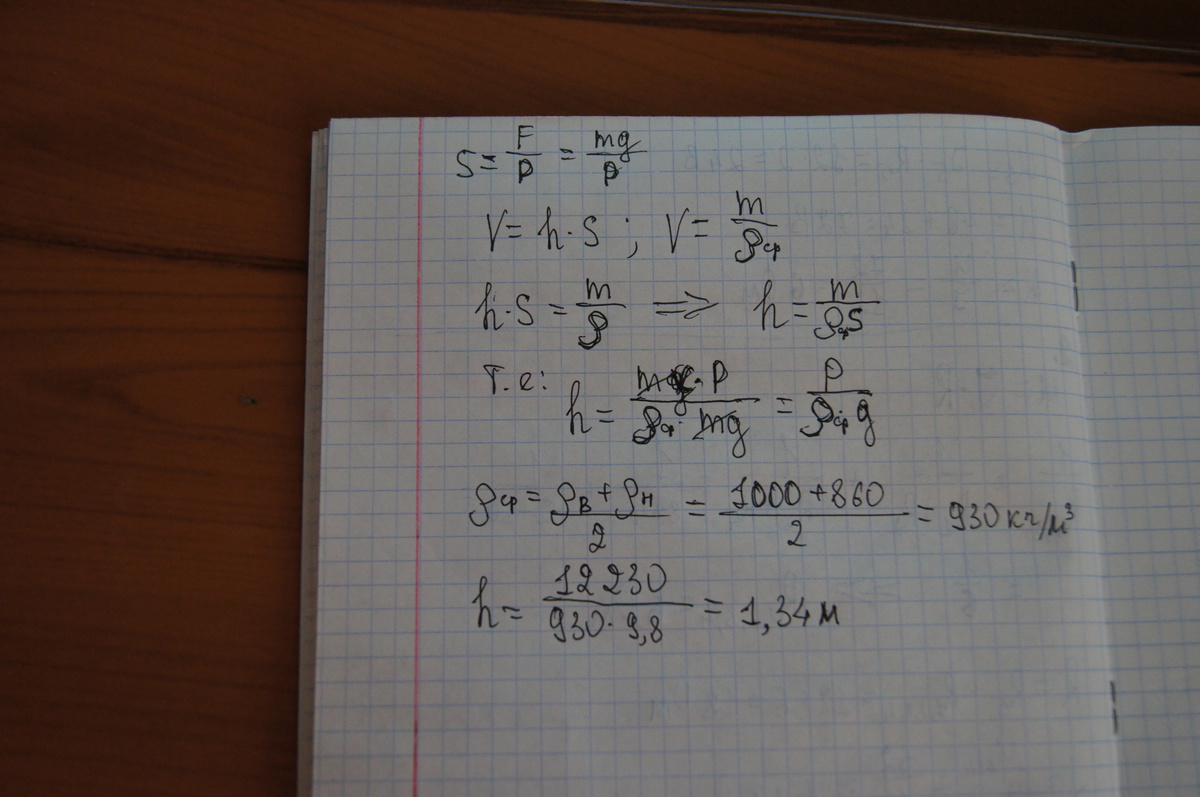 S = F/p = mg/p
V = h·S ; V = m/ρср
h·S = m/ρ ⇒ h = m/ρсрS
Т.е: h = mg·p/ρср·mg = p/ρсрg
ρср = ρв+ρн/2 = 1000+860/2 = 930 кг/м³
h = 12230/930·9,8 = 1,34 м